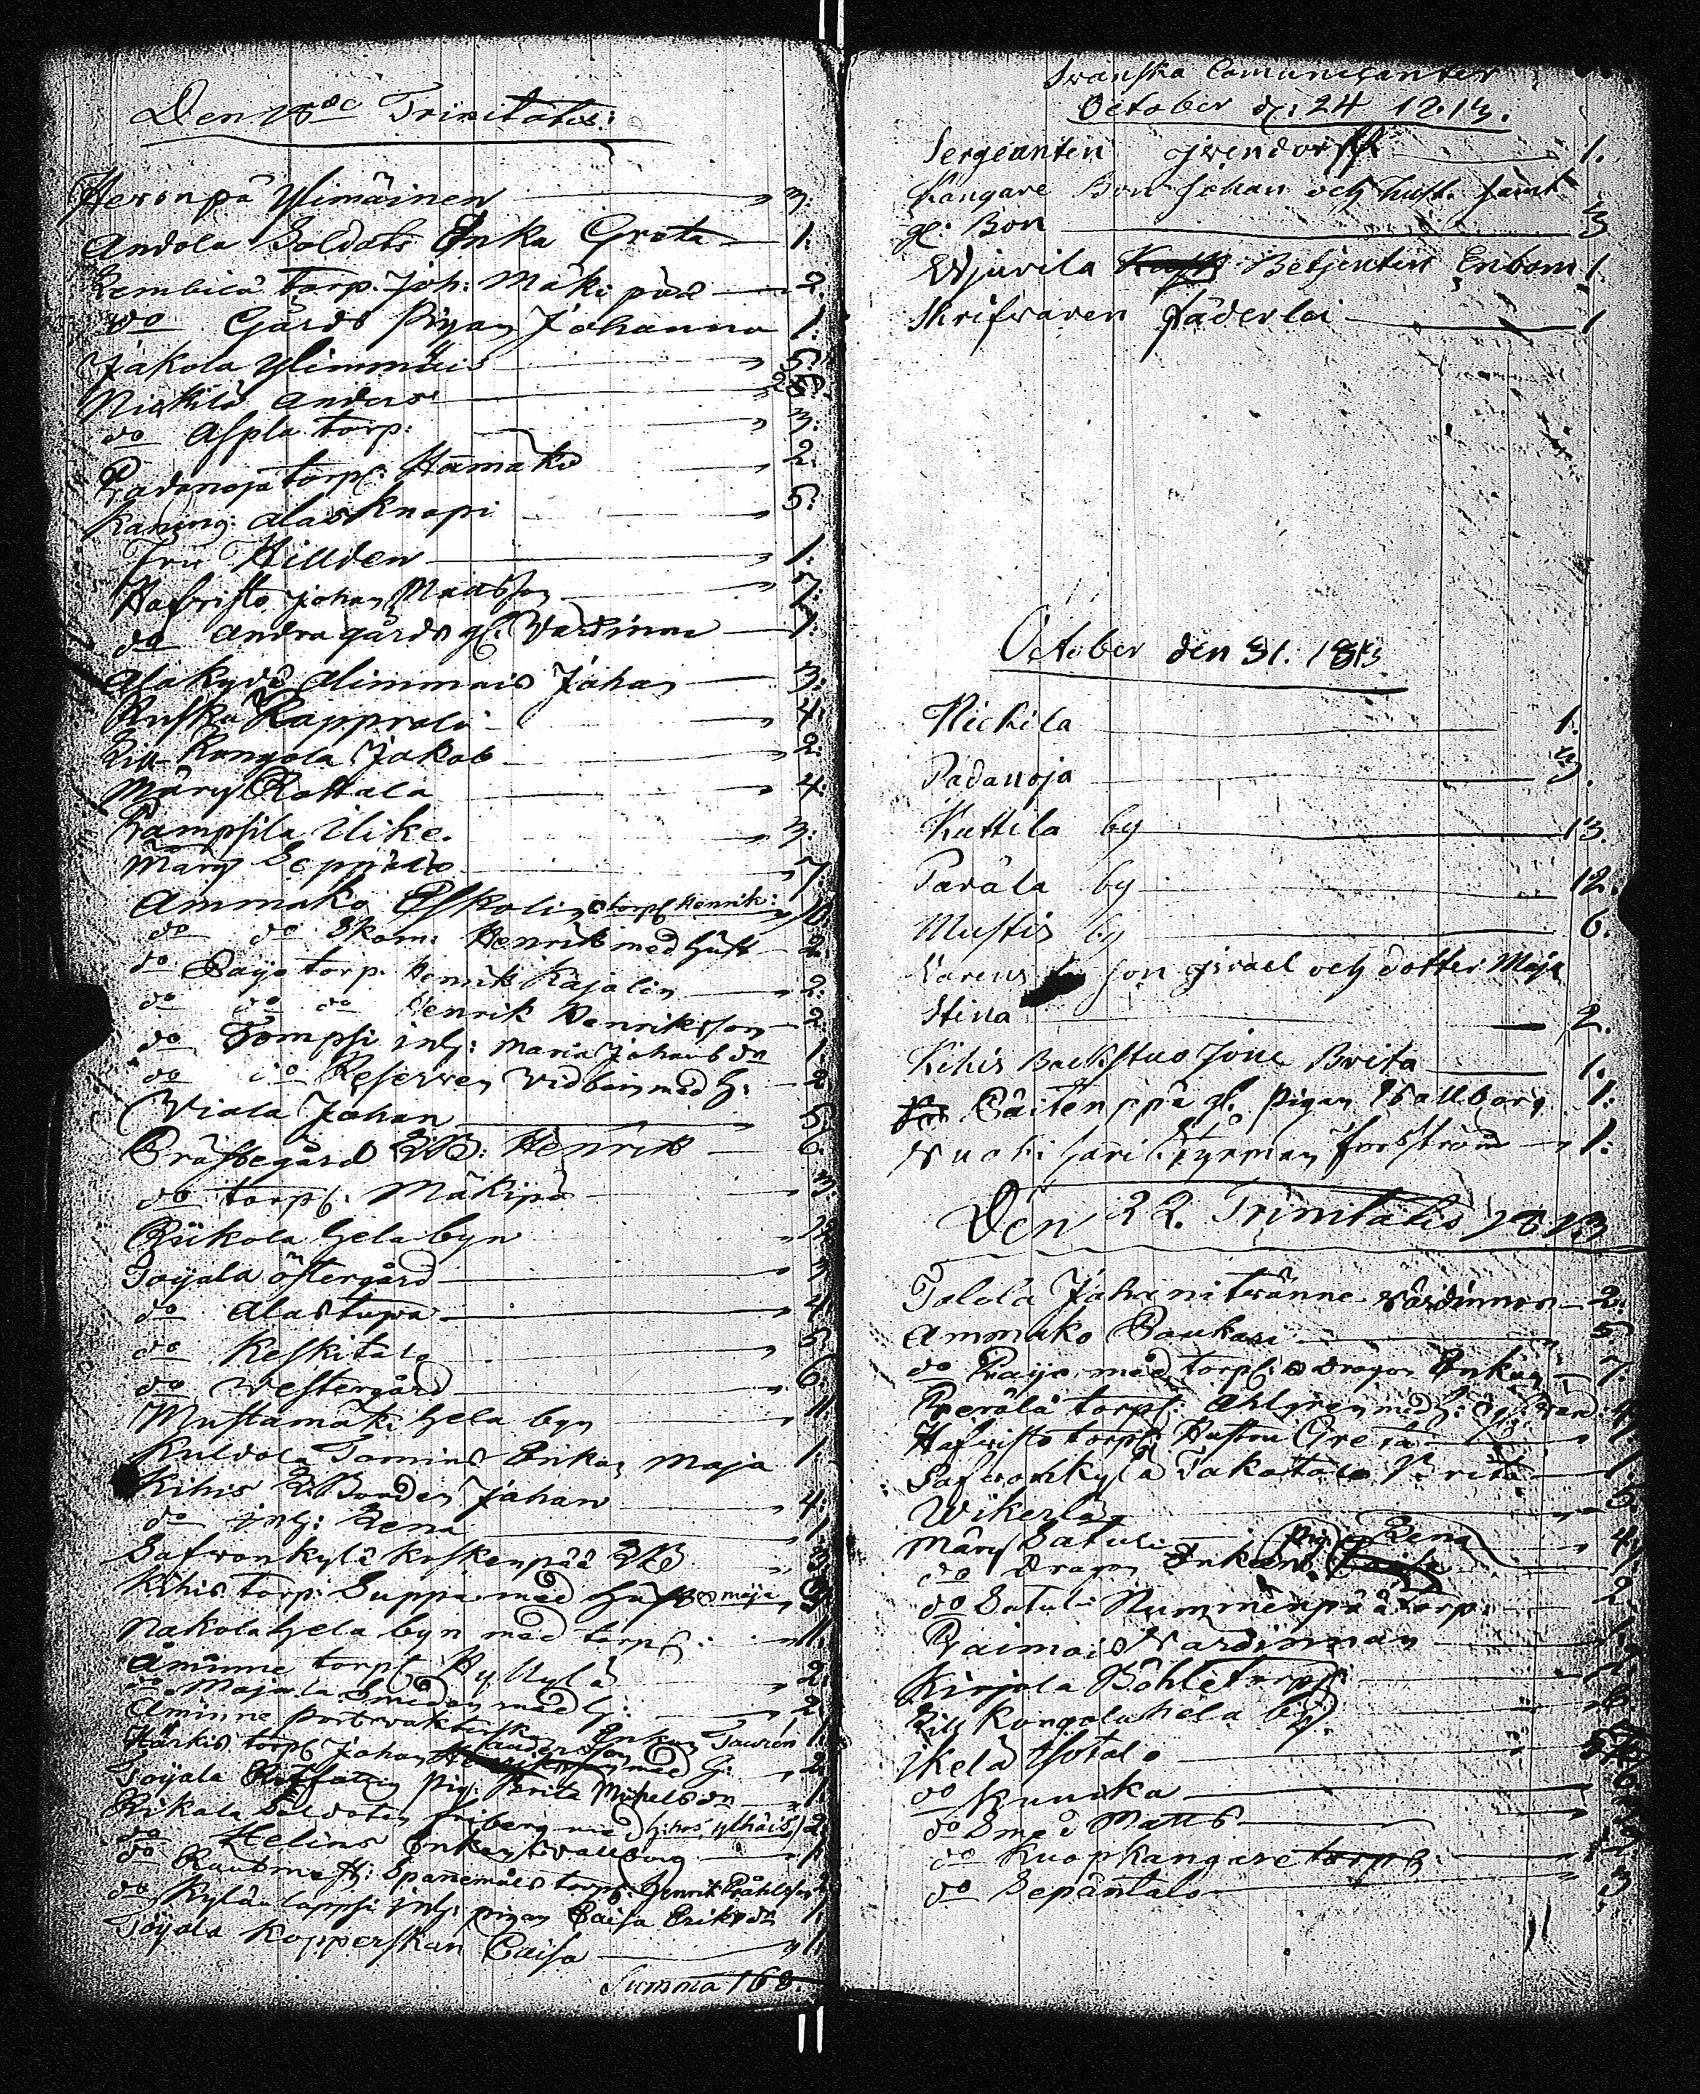 Den 18de Trinitatis:
Heronpä Ylimäinen 3.
Andola Soldats Enka Greta 1.
Lembilä torp. Joh: Mäkipää 2.
do Gårds Pigan Johanna 1.
Jakola Ylimmäis 5.
Nickilä Anders
do Aspla torp: 3.
Padanoja torp: Hämäkä 2.
Kaning: Alasknapi 5.
Fru Hillden 1.
Hafvisto Johan Mattsson 7.
do Andra gårds gl. Värdinna 1.
Alakyvö Alimmais Johan 3.
Ruska Rapprala 4.
Lill Kongola Jakob 2.
Märy Rottala 4.
Pampsila Ilike. 3.
Märy Seppälä 7.
Ammako Eskolin torp Henrik: 10.
do do Skom: Henrik med Hust 2.
do Paijo torp. Henrik Kajalin 2.
do do do Henrik Henriksson 2.
do Tompsi inh: Maria Johansdr 1.
do do Reserven Vidbom med h: 2.
Viala Johan 5.
Prästegård LB: Henrik 6.
do torp: Mäkipä 3.
Riikola hela byn 12
Toijala östergård 3
do Alastupa 4.
do Keskitalo 5.
do Westergård 6.
Mustamäki hela byn 11.
Kuldola Tomins Enkan Maja 1.
Kihis LBonden Johan 4.
do inh: Lena 1.
Safvonkylä Koskenpää LB 3
Kihis torp: Suppa med Hust o Maja 3
Nakola hela byn med torp:
Åminne torp: 2.
Majala Smeden med h: 2.
Åminne portvakterska Enkan Taurén 1.
Härkis torp: Johan Andersson med h: 2
Toijala pig: Brita Michelsdr 1.
Rikala Soldaten Friberg med h: hos ylhäis 2.
do Helins Enka Vallborg 1.
do Spanemäis torp: Henrik Påhlsson
do Kylän lappsi inh: pigan Caisa Eriksdr 1.
Toijala Kopperskan Caisa 1.
Summa 168.
Svenska Comunicanter
October d: 24 1813.
Sergeanten Gyendorff 1.
Kangare Bon Johan och hust. samt
gl: Bon 3
Wjurila Betjenten Enbom 1
Skrifvaren Päderloi 1
October den 31. 1813
Nickila 1.
Padanoja 3.
Kuttila by 13.
Paråla by 12.
Mustis by 6.
Karens son Israel och dotter Maja
Stina 2.
Kihis Backstuo Jone Brita 1.
Päitenppä gl. Pigan Wallborg 1:
Nuoki Sari Styrman Forsström 1:
Den 22. Trinitatis 1813
Talola Juhanitvänne värdinnor 2.
Ammako Paukari 5
do Paijo med torp: o Dragon Enkan 7.
Perälä torp: Ahlgren med h:
Hafvisto torp: Hustru Greta 1
Safvonkylä Takatalo Brita 1.
Wikerlä 5.
Märy Satuli Pig Lena 4.
do Dragon Enkans
do Satuli Nummenpää torp: 2.
Raimais Värdinnan 1.
Kirjola Böhle torp:
Lill Kongola hela by. 6.
Ikelä Isotalo
do Kuuska 6.
do Smed Matts
do Kuopkangare torp:
do Sepäntalo 3